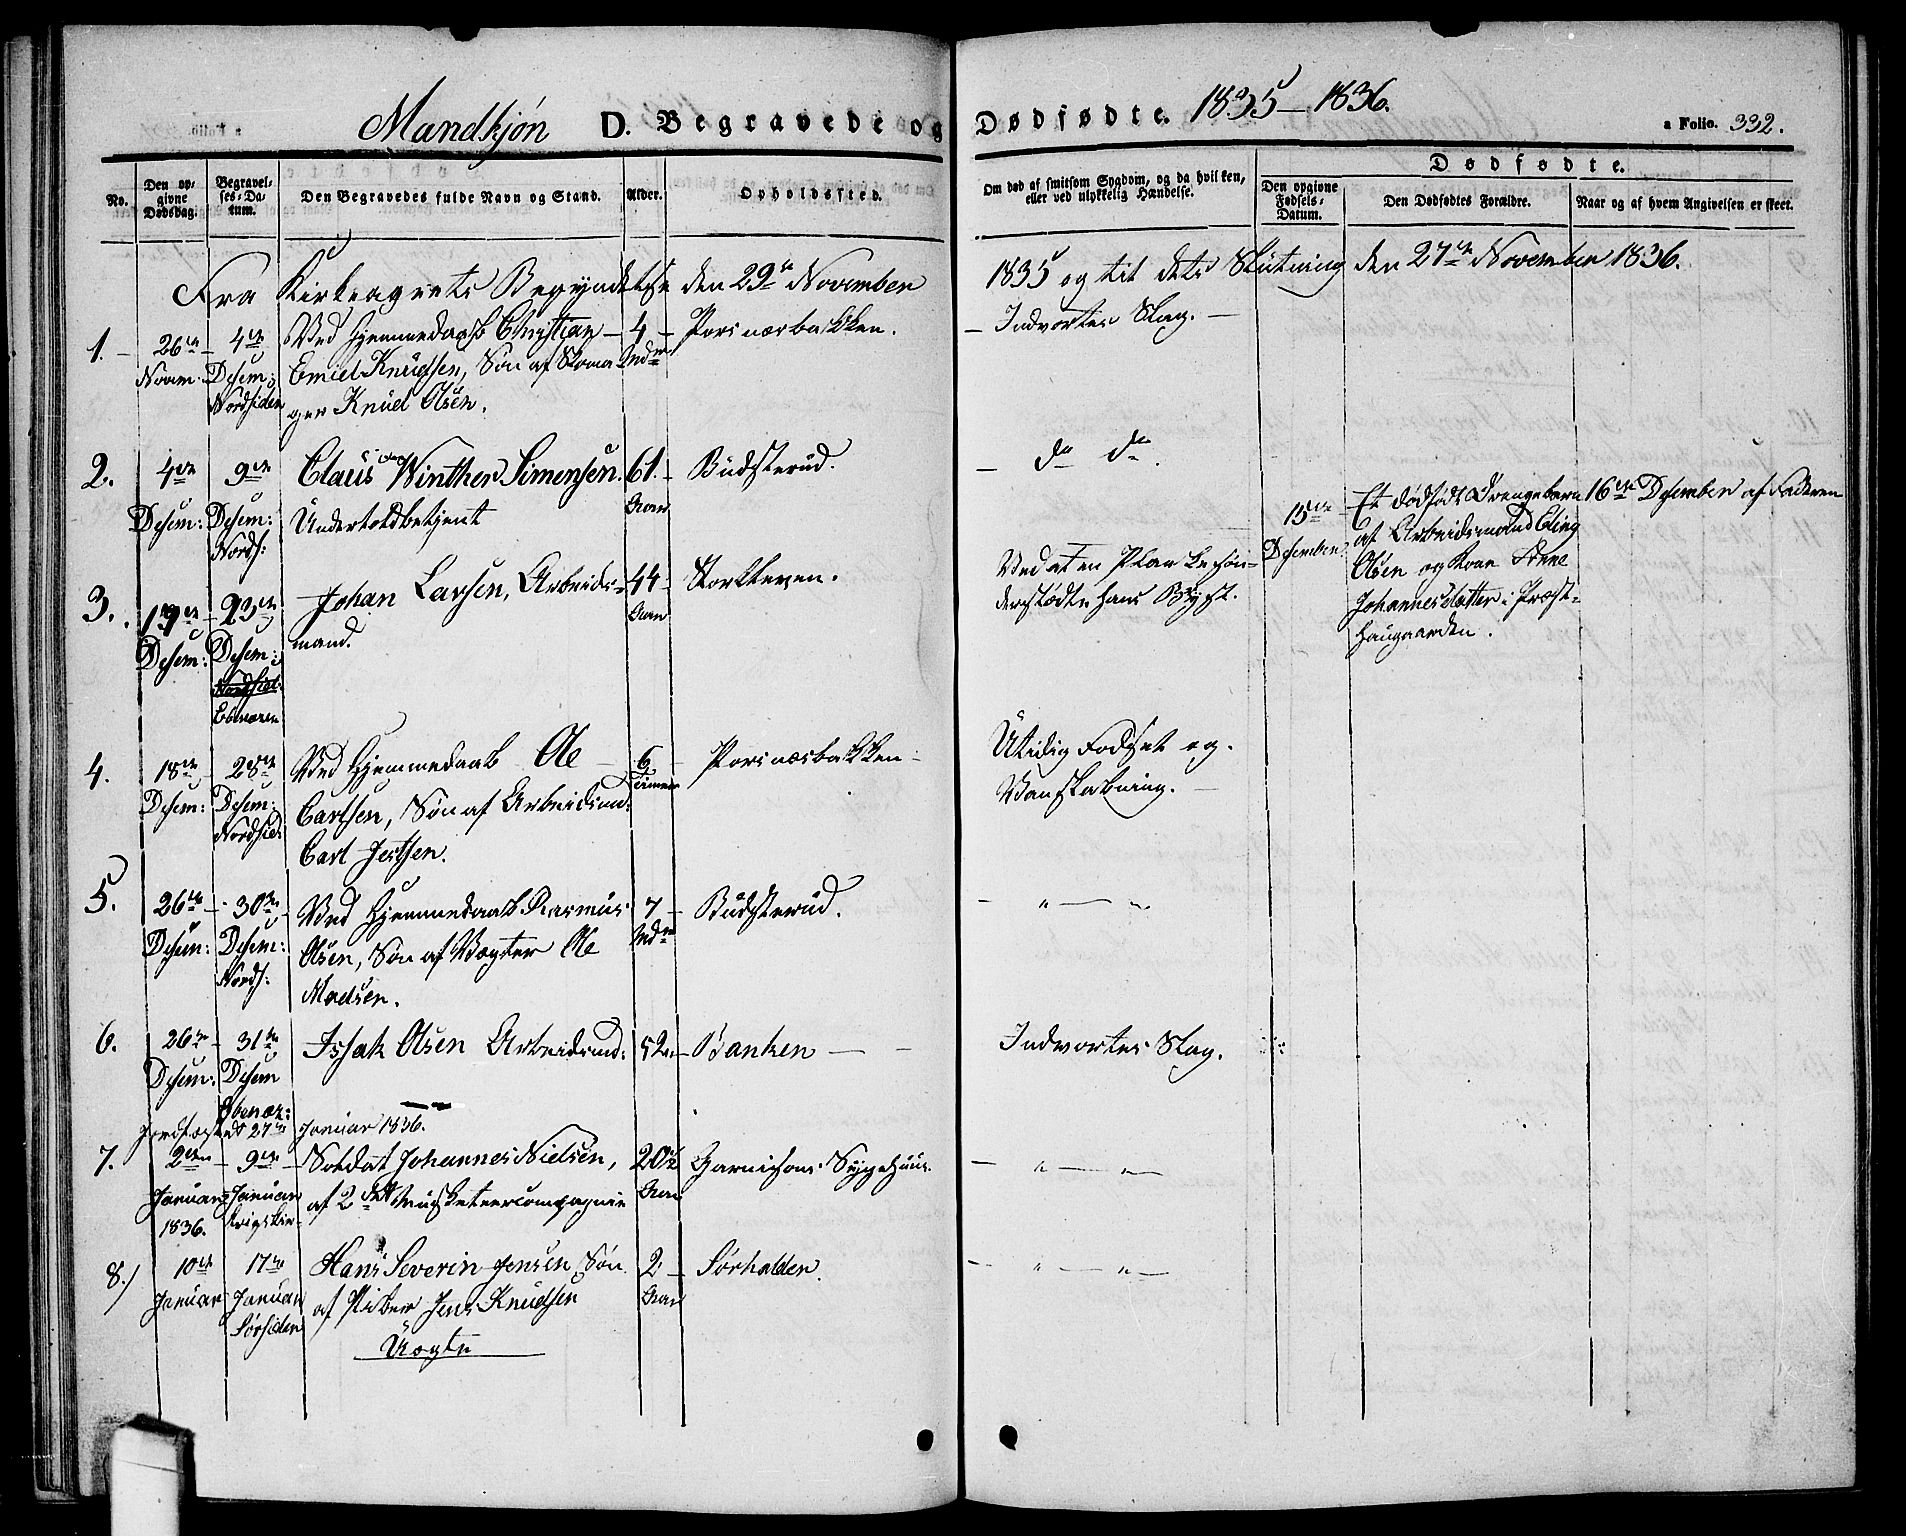 Mandkjøn D. Begravede og Dødfødte. 1835–1836. a Folio. 332.
No. Den opgivne Dødsdag. Begravelses-Datum. Den Begravedes fulde Navn og Stand. Alder. Opholdssted. Om død af smitsom Sygdom, og da hvilken, eller ved ulykkelig Hændelse. Dødfødte. Den opgivne Fødsels-Datum. Den Dødfødtes Forældre. Naar og af hvem Angivelsen er skeet.
Fra Kirkeaarets Begyndelse den 29de November 1835 og til dets Slutning den 27de November 1836.
1. 26de 4de Ved Hjemmedaab Christian 4 Porsnæsbakken. Indvortes Slag.
Novem: Desem: Emiel Knudsen, Søn af Skoma- Mdr
Nordsiden ger Knud Olsen.
2. 4de 9de Claus Winther Simensen. 61. Budsterud. do do.
Desem: Desem: Undertoldbetjent Aar
Nords:
15de Et dødfødt Drengebarn 16de Desember af Faderen
Desember. af Arbeidsmand Eling
Olsen og Kone Anne
Johannesdatter i Præst-
haugaarden.
3. 19de 23de Johan Larsen, Arbeids- 44 Storkleven. Ved at en Planke søn-
Desem: Desem: mand. Aar derstødte hans Bryst.
Nordsid:
4. 18de 28de Ved Hjemmedaab Ole 6 Porsnæsbakken Utidig Fødsel og
Desem: Desem: Carlsen, Søn af Arbeidsmd: Timer Vanskabning.
Nordsid: Carl
5. 26de 30de Ved Hjemmedaab Rasmus 7 Budsterud. " "
Desem: Desem: Olsen, Søn af Vægter Ole Mdr
Nords: Madsen.
6. 26de 31de Issak Olsen Arbeidsmd: 52 Banken Indvortes Slag.
Desem: Desem
Jordfæstedt 27de Januar 1836.
7. 2den 9de Soldat Johannes Nielsen, 20½ Garnisons Sygehuus. " "
Januar Januar af 2det Musketeercompagnie Aar
1836.
8.) 10de 17de Hans Severin Jensen Søn 2 Sørhalden. " "
Januar Januar af Piber Jens Knudsen Aar
Sørsiden Uægte